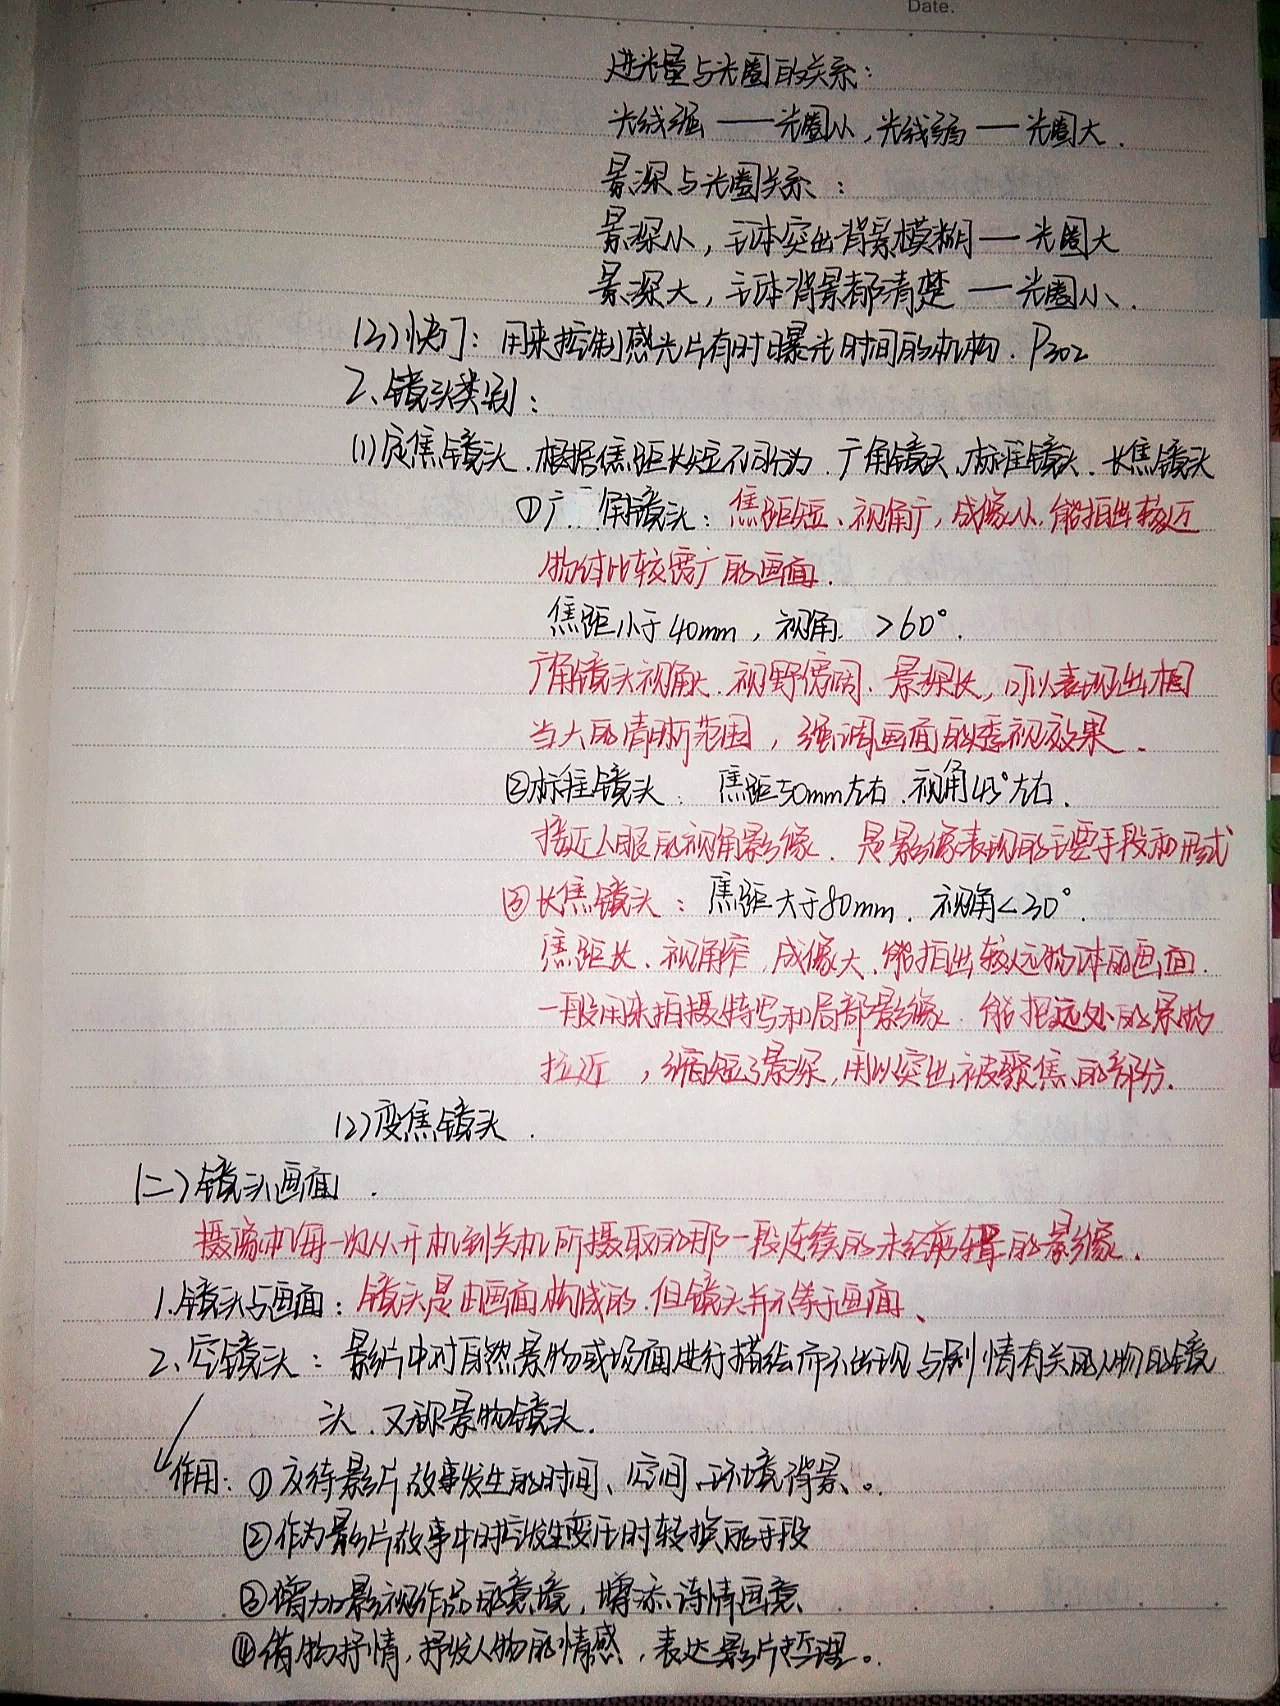 Date.
进光量与光圈的关系：
光线强——光圈小，光线弱——光圈大．
景深与光圈关系：
景深小，主体突出背景模糊——光圈大
景深大，主体背景都清楚——光圈小、
(3)快门：用来控制感光片有时曝光时间的机构．P302
2、镜头类别：
(1)定焦镜头．根据焦距长短不同分为．广角镜头、标准镜头．长焦镜头
①广角镜头：焦距短、视角广，成像小，能拍出较近
物体比较宽广的画面．
焦距小于40mm，视角．>60°．
广角镜头视角大．视野宽阔．景深长，可以表现出相
当大的清晰范围，强调画面的透视效果．
②标准镜头．焦距50mm左右．视角45°左右．
接近人眼的视角影像．是影像表现的主要手段和形式
③长焦镜头：焦距大于80mm．视角<30°．
焦距长、视角窄，成像大、能拍出较远物体的画面．
一般用来拍摄特写和局部影像．能把远处的景物
拉近，缩短了景深，用以突出被聚焦的部分．
(2)变焦镜头．
(二)镜头画面．
摄像机每一次从开机到关机所摄取的那一段连续的未经剪辑的影像．
1.镜头与画面：镜头是由画面构成的．但镜头并不等于画面、
2、空镜头：影片中对自然景物或场面进行描绘而不出现与剧情有关的人物的镜
头．又称景物镜头．
作用：①交待影片故事发生的时间、空间、环境背景、。
②作为影片故事中时空发生变化时转换的手段
③增加影视作品的意境，增添诗情画意
④借物抒情，抒发人物的情感，表达影片哲理。